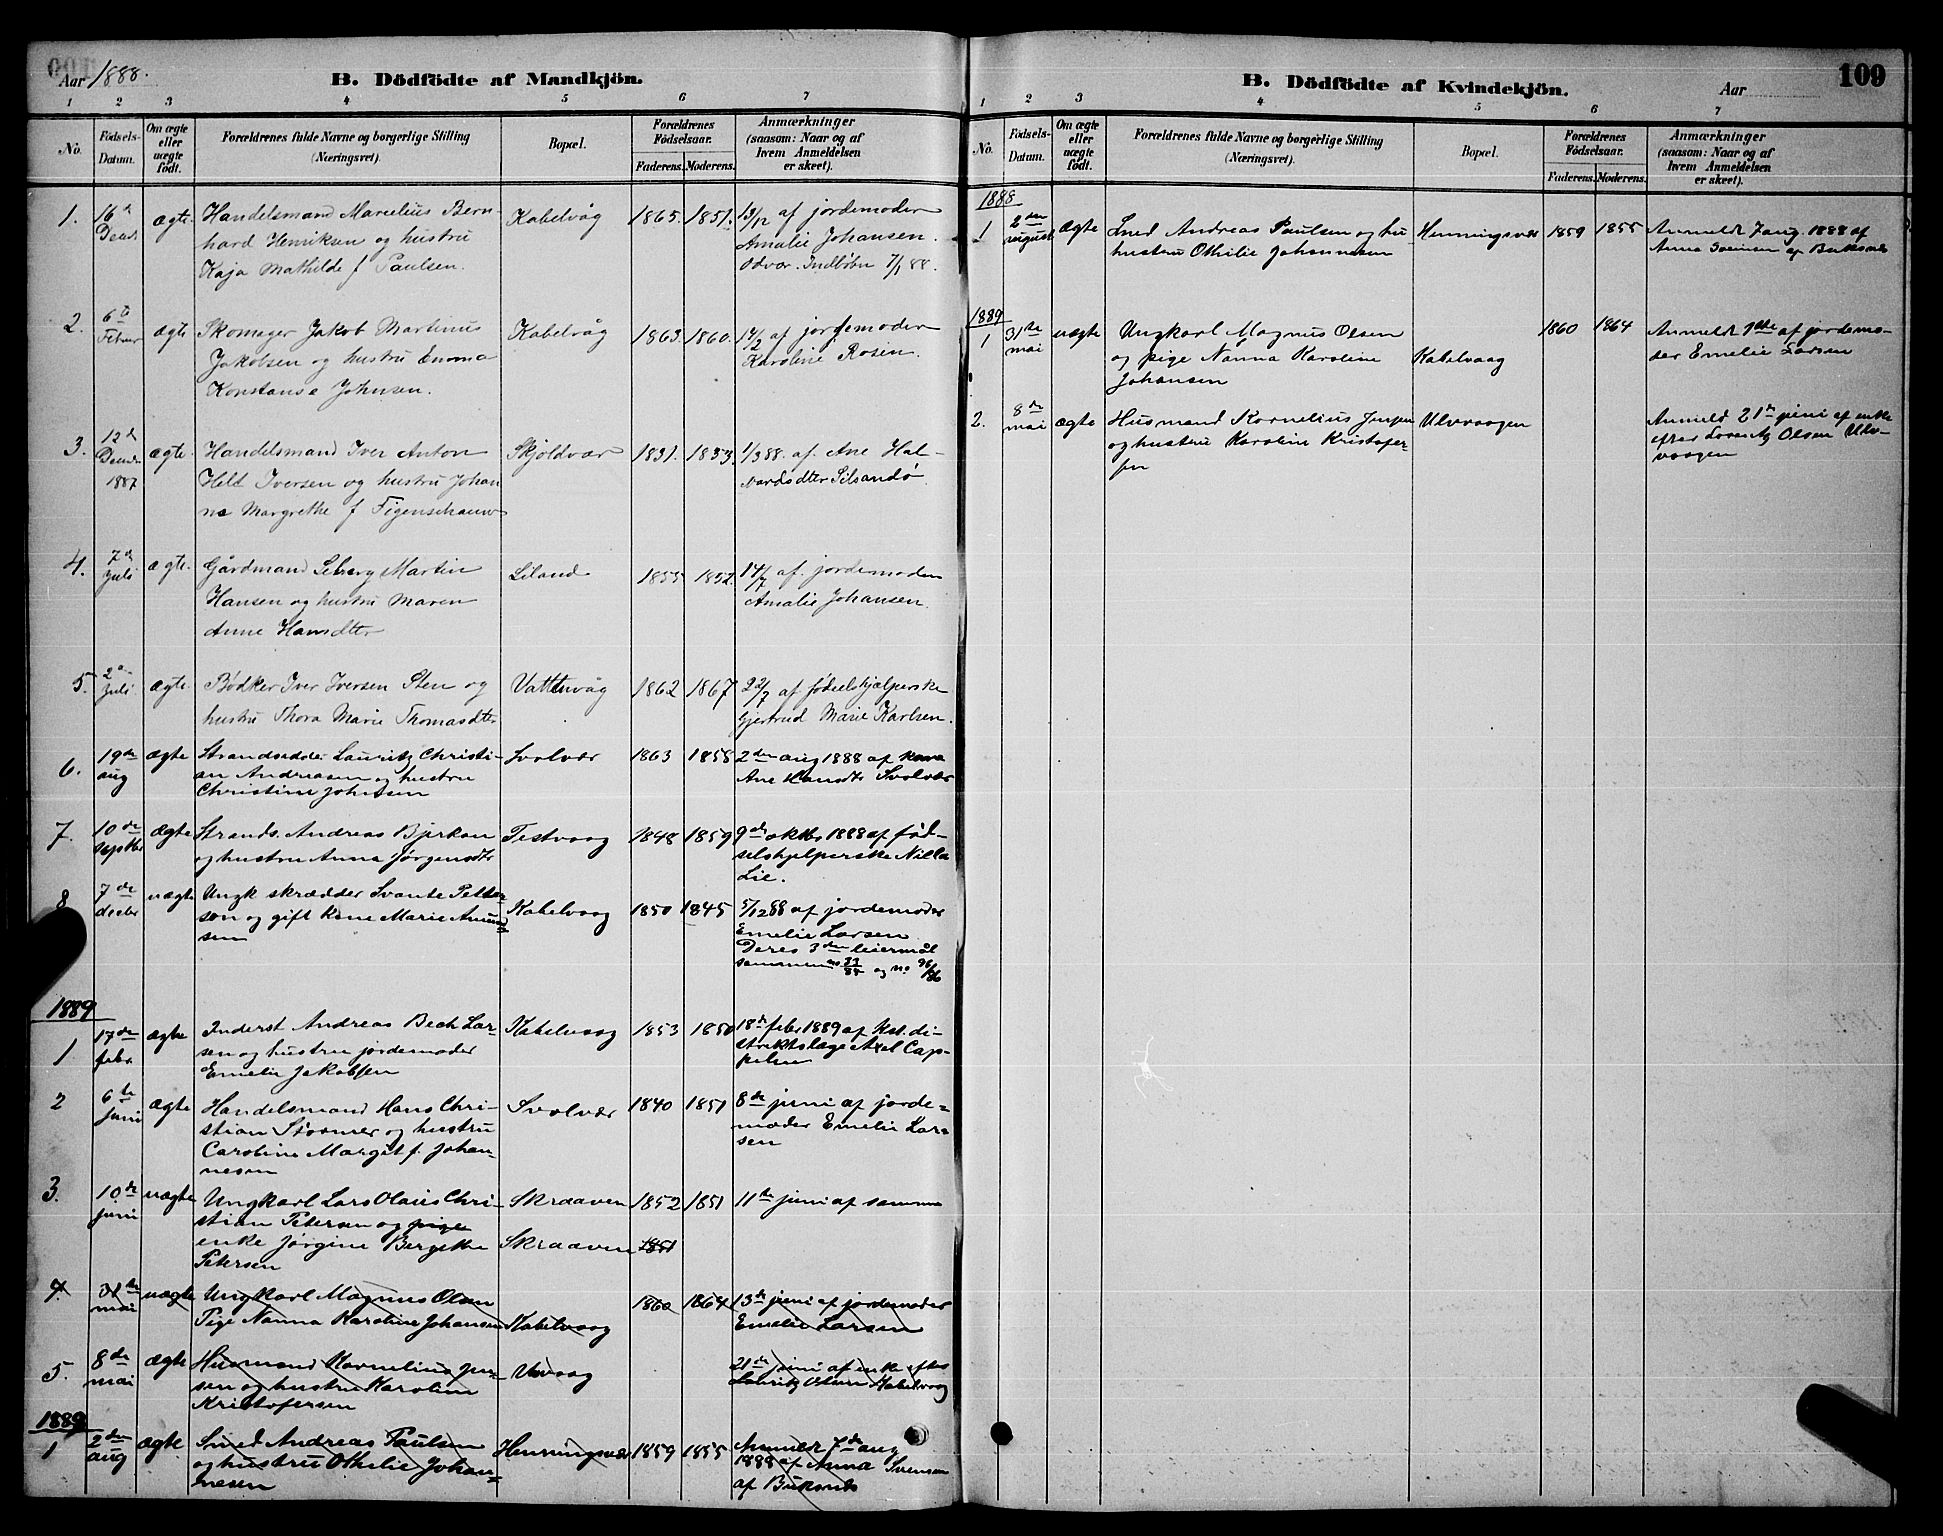 Aar 1888.
B. Dödfödte af Mandkjön.
1 2 3 4 5 6 7
No.
Födsels-Datum.
Om ægte eller uægte födt.
Forældrenes fulde Navne og borgerlige Stilling (Næringsvei).
Bopæl.
Forældrenes Födselsaar.
Faderens. Moderens.
Anmærkninger (saasom: Naar og af hvem Anmeldelsen er skeet).
1. 16de Decbr ægte Handelsmand Marcelius Bern- Kabelvåg 1865. 1851. 13/12 af jordemoder
hard Henriksen og hustru Amalie Johansen.
Kaja Mathilde f Paulsen. Odvar. Indløbn 7/1 88.
2. 6te Februar ægte Skomager Jakob Martinus Kabelvåg 1863. 1860. 14/2 af jordemoder
Jakobsen og hustru Emma Karoline Rosin.
Konstanse Johnsen.
3. 12te Decbr 1887 ægte Handelsmand Iver Anton Skjoldvær 1831. 1833. 1/3 88. af Ane Hal-
Held Iversen og hustru Johan vardsdtter Silsandö
na Margrethe f Figenschauw
4. 7de Juli ægte. Gårdmand Martin Liland 1855 1852. 14/7 af jordemoder
Hansen og hustru Maren Amalie Johansen.
Anne Hansdtter
5. 2den Juli ægte. Bødker Iver Iversen Sten og Vattenvåg 1862 1867 22/7 af fødselshjælperske
hustru Thora Marie Thomasdtter Gjertrud Marie Karlsen.
6. 19de aug ægte Strandsidder Lauritz Christi- Svolvær 1863 1858 2den aug 1888 af kone
an Andreasen og hustru Ane Hansdtr Svolvær
Christine Johnsen
7. 10de septbr ægte Strands. Andreas Bjerkan Testvaag 1848 1859 9de oktbr 1888 af fød-
og hustru Anna Jørgensdtr selshjelperske Nilla
Lie.
8 7de decbr uægte Ungk skrædder Svante Petter-
son og gift kone Marie Amund Kabelvaag 1850 1845 5/12 88 af jordemoder
sen Emelie Larsen
Deres 3die leiermål
sammen no og no 96/86
1889
1 17de febr ægte Inderst Andreas Bech Lar- Kabelvaag 1853 1850 18de febr 1889 af Kst. di-
sen og hustru jordemoder striktslæge Axel Cap-
Emelie Jakobsen pelen
2 6te juni ægte Handelsmand Hans Chri- Svolvær 1840 1851 8de juni af jorde-
stian Störmer og hustru moder Emelie Lar-
Caroline Margit f. Johan- sen
nesen
3. 10de juni uægte Ungkarl Lars Olaus Chri- Skraaven 1852 1851 11te juni af samme
stian Petersen og pige
enke Jørgine Bergethe Skraaven 1851
Petersen
4. 31te mai uægte Ungkarl Magnus Olsen 1860 1864 13de juni af jordemoder
Pige Nanna Karoline Johansen Kabelvaag Emelie Larsen
5. 8de mai ægte Husmand Kornelius Jen- Ulvvaag 21de juni af enke efter
sen og hustru Karoline Lauritz Olsen Kabelvaag
Kristofersen
1889
1 2den aug ægte Smed Andreas Paulsen Henningsvær 1859 1855 Anmeldt 7de aug
og hustru Othilie Johan- 1888 af Anna Svensen
nesen af Buksnes
B. Dödfödte af Kvindekjön.
Aar
109
1 2 3 4 5 6 7
No.
Födsels-Datum.
Om ægte eller uægte födt.
Forældrenes fulde Navne og borgerlige Stilling (Næringsvei).
Bopæl.
Forældrenes Födselsaar.
Faderens. Moderens.
Anmærkninger (saasom: Naar og af hvem Anmeldelsen er skeet).
1888
1 2den august ægte Smed Andreas Paulsen og hu Henningsvær 1859 1855 Anmeldt 7 aug. 1888 af
hustru Othilie Johannesen Anna Svensen af Buksnes
1889
1 31te mai uægte Ungkarl Magnus Olsen 1860 1864 Anmeldt af jordemo-
og pige Nanna Karoline Kabelvaag der Emelie Larsen
Johansen
2. 8de mai ægte Husmand Kornelius Jensen Ulvvaagen Anmeld 21de juni af enke
og hustru Karoline Kristofer- efter Lorentz Olsen Ulv-
sen vaagen